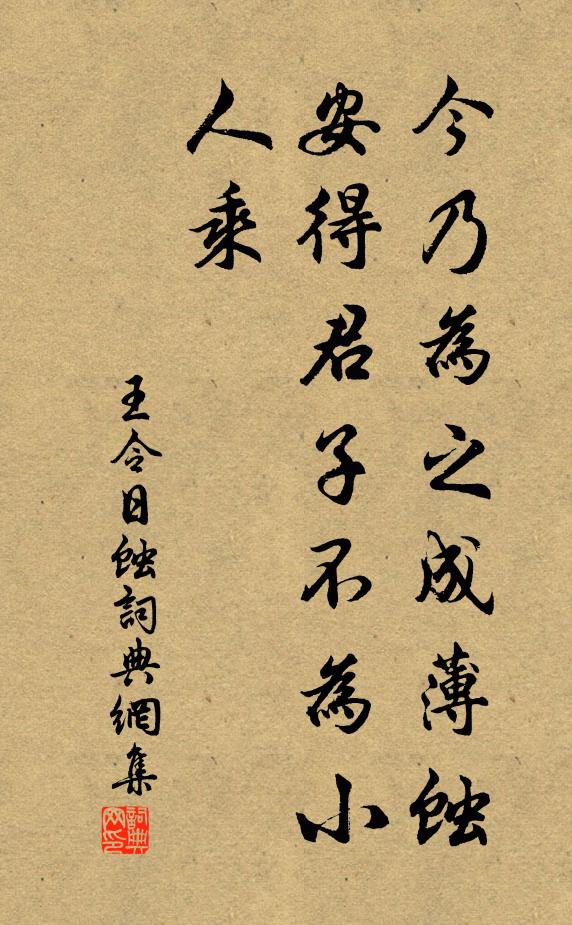 今乃為之成薄蝕
安得君子不為小
人乘
王令日蝕詞典網集
詞典
网印